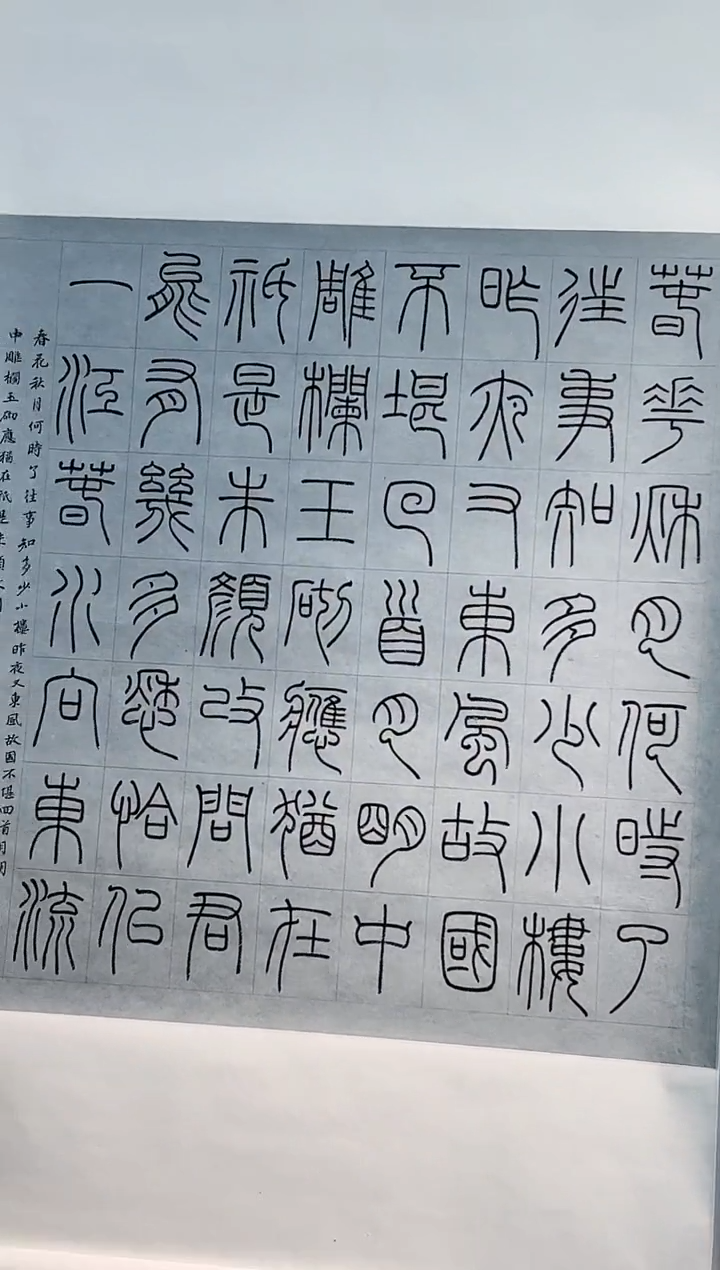 春花秋月何時了
往事知多少小樓
昨夜又東風故國
不堪回首月明中
雕欄玉砌應猶在
祇是朱顏改問君
能有幾多愁恰似
一江春水向東流
春花秋月何時了往事知多少小樓昨夜又東風故國不堪回首月明
中雕欄玉砌應猶在祇是朱顏